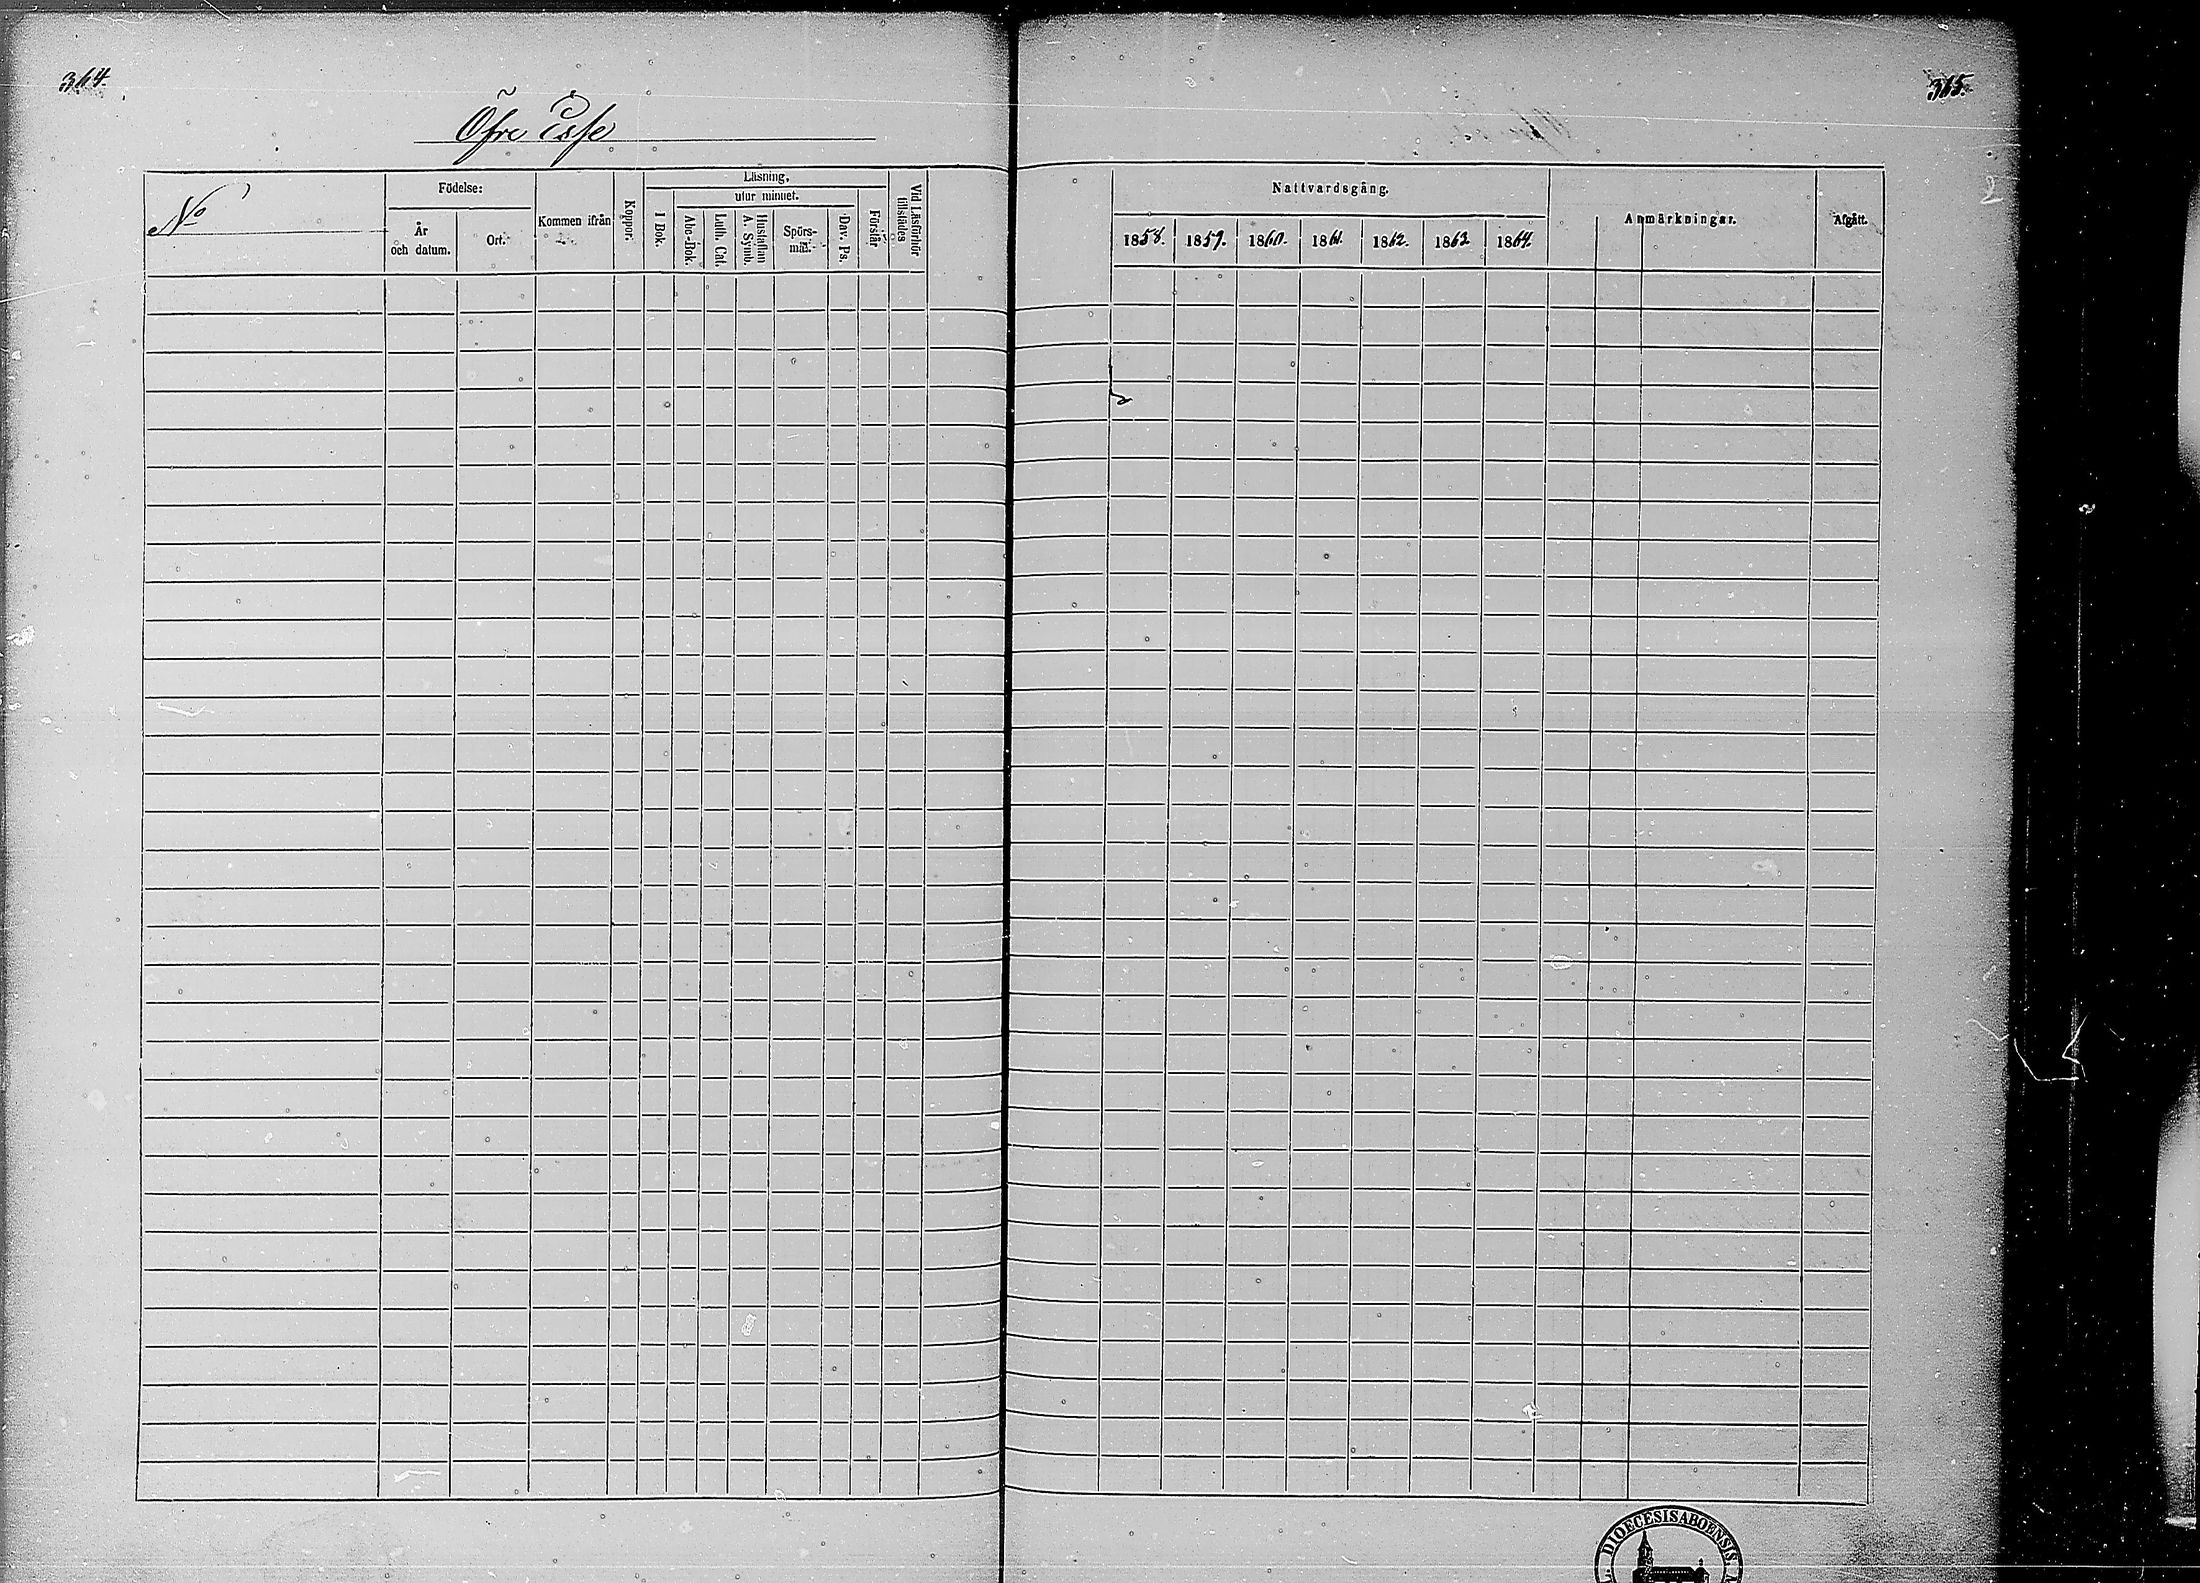 364.
365.
Öfre Esse
No
Födelse:
År
och datum.
Ort.
Kommen ifrån
Koppor.
Läsning,
I Bok.
utur minnet.
Abc-Bok.
Luth. Cat.
Hustaflan
A. Symb.
Spörs-
mål.
Dav. Ps.
Förstår
Vid Läsförhör
tillstädes
Nattvardsgång.
1858.
1859.
1860.
1861.
1862.
1863
1864.
Anmärkningar.
Afgått.
DIOECESIS ABOENSIS.